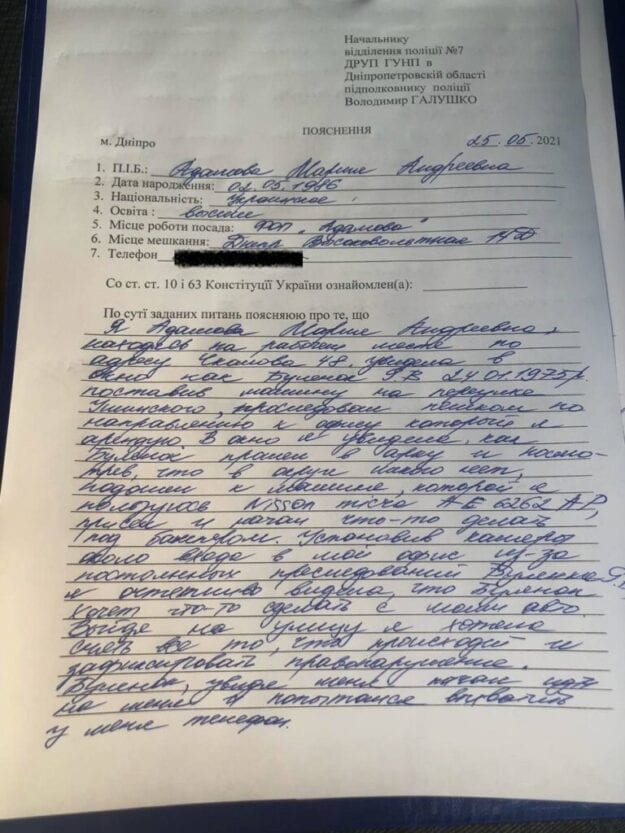 Начальнику
відділення поліції №7
ДРУП ГУНП в
Дніпропетровській області
підполковнику поліції
Володимир ГАЛУШКО
ПОЯСНЕННЯ
м. Дніпро 25.05.2021
1. П.І.Б.: Адамова Мария Андреевна
2. Дата народження: 02.05.1986
3. Національність: Украинское
4. Освіта : высшее
5. Місце роботи посада: ФОП „Адамова"
6. Місце мешкання: Днепр Высоковольтная
7. Телефон
Со ст. ст. 10 і 63 Конституції України ознайомлен(а):
По суті заданих питань поясняюю про те, що
Я Адамова Мария Андреевна,
находясь на рабочем месте по
адресу Чкалова 48, увидела в
окно как Буленок Я.В 24.01.1975р.
поставив машину на переулке
Ушинского, проследовал пешком по
направлению к офису который я
арендую. В окно я увидела, как
Буленок прошел в арку и посмо-
трев, что в округе никого нет,
подошел к машине, которой я
пользуюсь Nissan micra АЕ 6262 АР,
присел и начал что-то делать
под бампером. Установив камеры
около входа в мой офис из-за
постоянных преследований Буленка Я.В
я отчетливо видела, что Буленок
хочет что-то сделать с моим авто.
Выйдя на улицу я хотела
снять все то, что происходит и
зафиксировать правонарушение.
Буленок, увидя меня начал идти
на меня и попытался выхватить
у меня телефон.